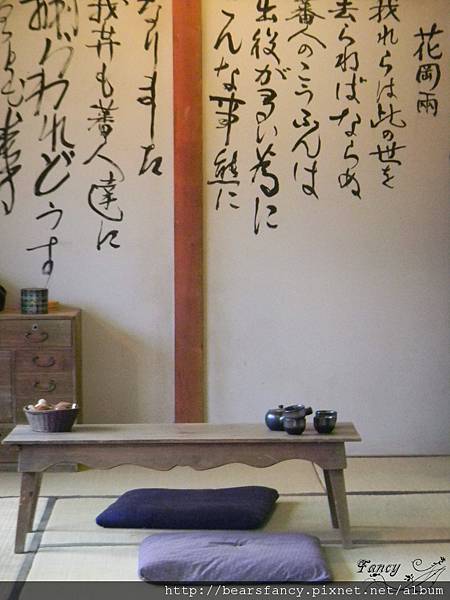 花岡兩
我れらは此の世を
去らねばならぬ
蕃人のこうふんは
出役が多い為に
こんな事態に
なりました
我等も蕃人達に
われどうす
Fancy
http://bearsfancy.pixnet.net/album